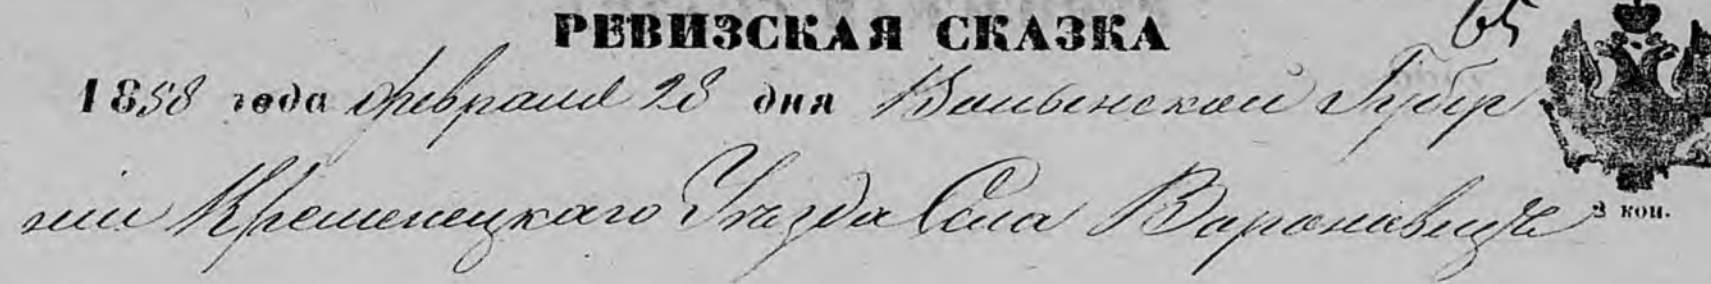 РЕВИЗСКАЯ СКАЗКА
65
1858 года февраля 28 дня Волынской Губер
ніи Кременецкаго Уѣзда Села Вароновецъ
3 коп.